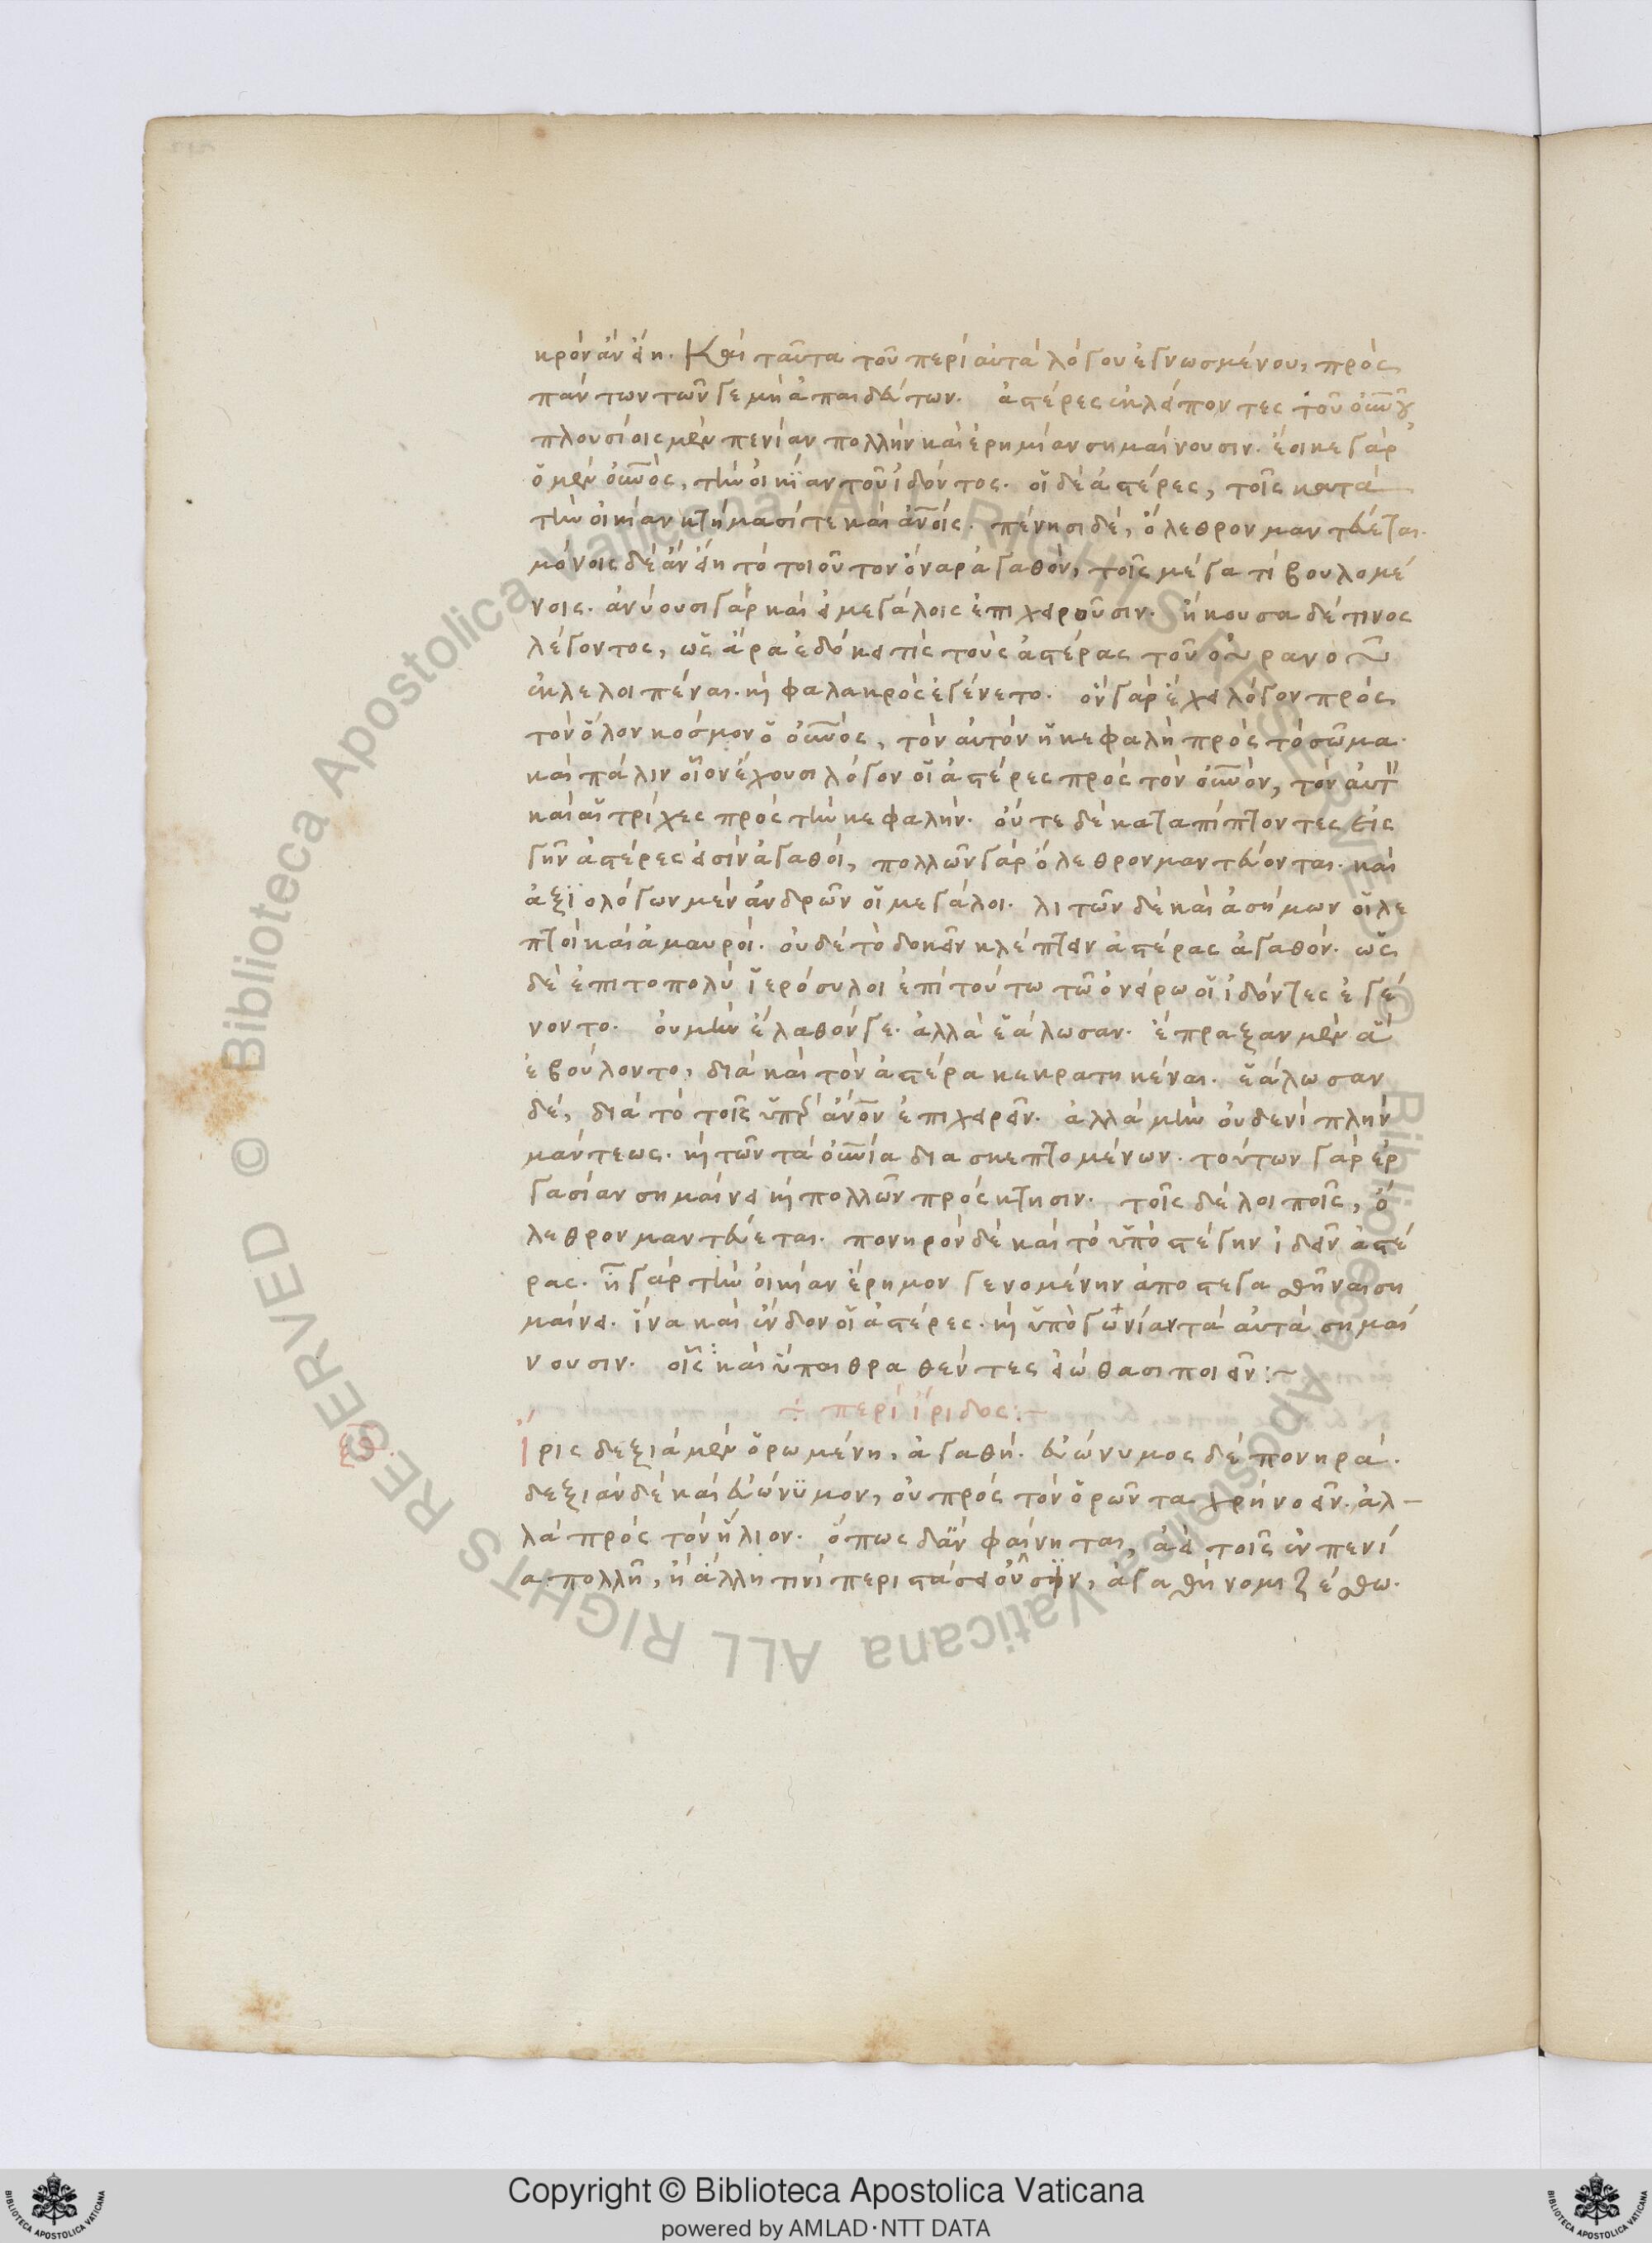 κρὸν ἂν εἴη. Καὶ ταῦτα τοῦ περὶ αὐτὰ λόγου ἐγνωσμένου, πρὸς
πάντων τῶν γε μὴ ἀπαιδεύτων. ἀστέρες ἐκλείποντες τοῦ οὐνοῦ,
πλουσίοις μὲν πενίαν πολλὴν καὶ ἐρημίαν σημαίνουσιν. ἔοικε γὰρ
ὁ μὲν οὐνὸς, τὴν οἰκίαν τοῦ ἰδόντος. οἱ δὲ ἀστέρες, τοῖς κατὰ
τὴν οἰκίαν κτήμασί τε καὶ ἀνοῖς. πένησι δὲ, ὄλεθρον μαντεύεται.
μόνοις δὲ ἂν εἴη τὸ τοιοῦτον ὄναρ ἀγαθὸν, τοῖς μέγα τι βουλομέ
νοις. ἀνύουσι γὰρ καὶ εἰ μεγάλοις ἐπιχειροῦσιν. ἤκουσα δέ τινος
λέγοντος, ὡς ἄρα ἐδόκει τις τοὺς ἀστέρας τοῦ οὐρανοῦ
ἐκλελοιπέναι. καὶ φαλακρὸς ἐγένετο. ὃν γὰρ ἔχει λόγον πρὸς
τὸν ὅλον κόσμον ὁ οὐνὸς, τὸν αὐτὸν ἡ κεφαλὴ πρὸς τὸ σῶμα.
καὶ πάλιν οἷον ἔχουσι λόγον οἱ ἀστέρες πρὸς τὸν οὐνὸν, τὸν αὐτ
καὶ αἱ τρίχες πρὸς τὴν κεφαλήν. οὔτε δὲ καταπίπτοντες εἰς
γῆν ἀστέρες εἰσὶν ἀγαθοὶ, πολλῶν γὰρ ὄλεθρον μαντεύονται. καὶ
ἀξιολόγων μὲν ἀνδρῶν οἱ μεγάλοι. λιτῶν δὲ καὶ ἀσήμων οἱ λε
πτοὶ καὶ ἀμαυροί. οὐδὲ τὸ δοκεῖν κλέπτειν ἀστέρας ἀγαθόν. ὡς
δὲ ἐπιτοπολὺ ἱερόσυλοι ἐπὶ τούτω τῶ ὀνείρω οἱ ἰδόντες ἐγέ
νοντο. οὐ μὴν ἔλαθόν γε. ἀλλὰ ἑάλωσαν. ἔπραξαν μὲν ἃ
ἐβούλοντο, διὰ καὶ τὸν ἀστέρα κεκρατηκέναι. ἑάλωσαν
δὲ, διὰ τὸ τοῖς ὑπὲρ ἄνον ἐπιχειρεῖν. ἀλλὰ μὴν οὐδενὶ πλὴν
μάντεως. καὶ τῶν τὰ οὐνία διασκεπτομένων. τούτων γὰρ ἐρ
γασίαν σημαίνει καὶ πολλῶν πρόσκτησιν. τοῖς δὲ λοιποῖς, ὄ
λεθρον μαντεύεται. πονηρὸν δὲ καὶ τὸ ὑπὸ στέγην ἰδεῖν ἀστέ
ρας. ἢ γὰρ τὴν οἰκίαν ἔρημον γενομένην ἀποστεγασθῆναι ση
μαίνει. ἵνα καὶ ἔνδον οἱ ἀστέρες. καὶ ὑπὸ γωνίαν τὰ αὐτὰ σημαί
νουσιν. οἷς καὶ ὑπαιθραθέντες εἰώθασι ποιεῖν:~
÷ περὶ ἴριδος:~
Ἶρις δεξιὰ μὲν ὁρωμένη, ἀγαθή. εὐώνυμος δὲ πονηρά.
δεξιὰν δὲ καὶ εὐώνυμον, οὐ πρὸς τὸν ὁρῶντα χρὴ νοεῖν. ἀλ-
λὰ πρὸς τὸν ἥλιον. ὅπως δἂν φαίνηται, ἀεὶ τοῖς ἐν πενί
α πολλῆ, ἢ ἄλλη τινὶ περιστάσει οὖσιν, ἀγαθὴ νομιζέσθω.